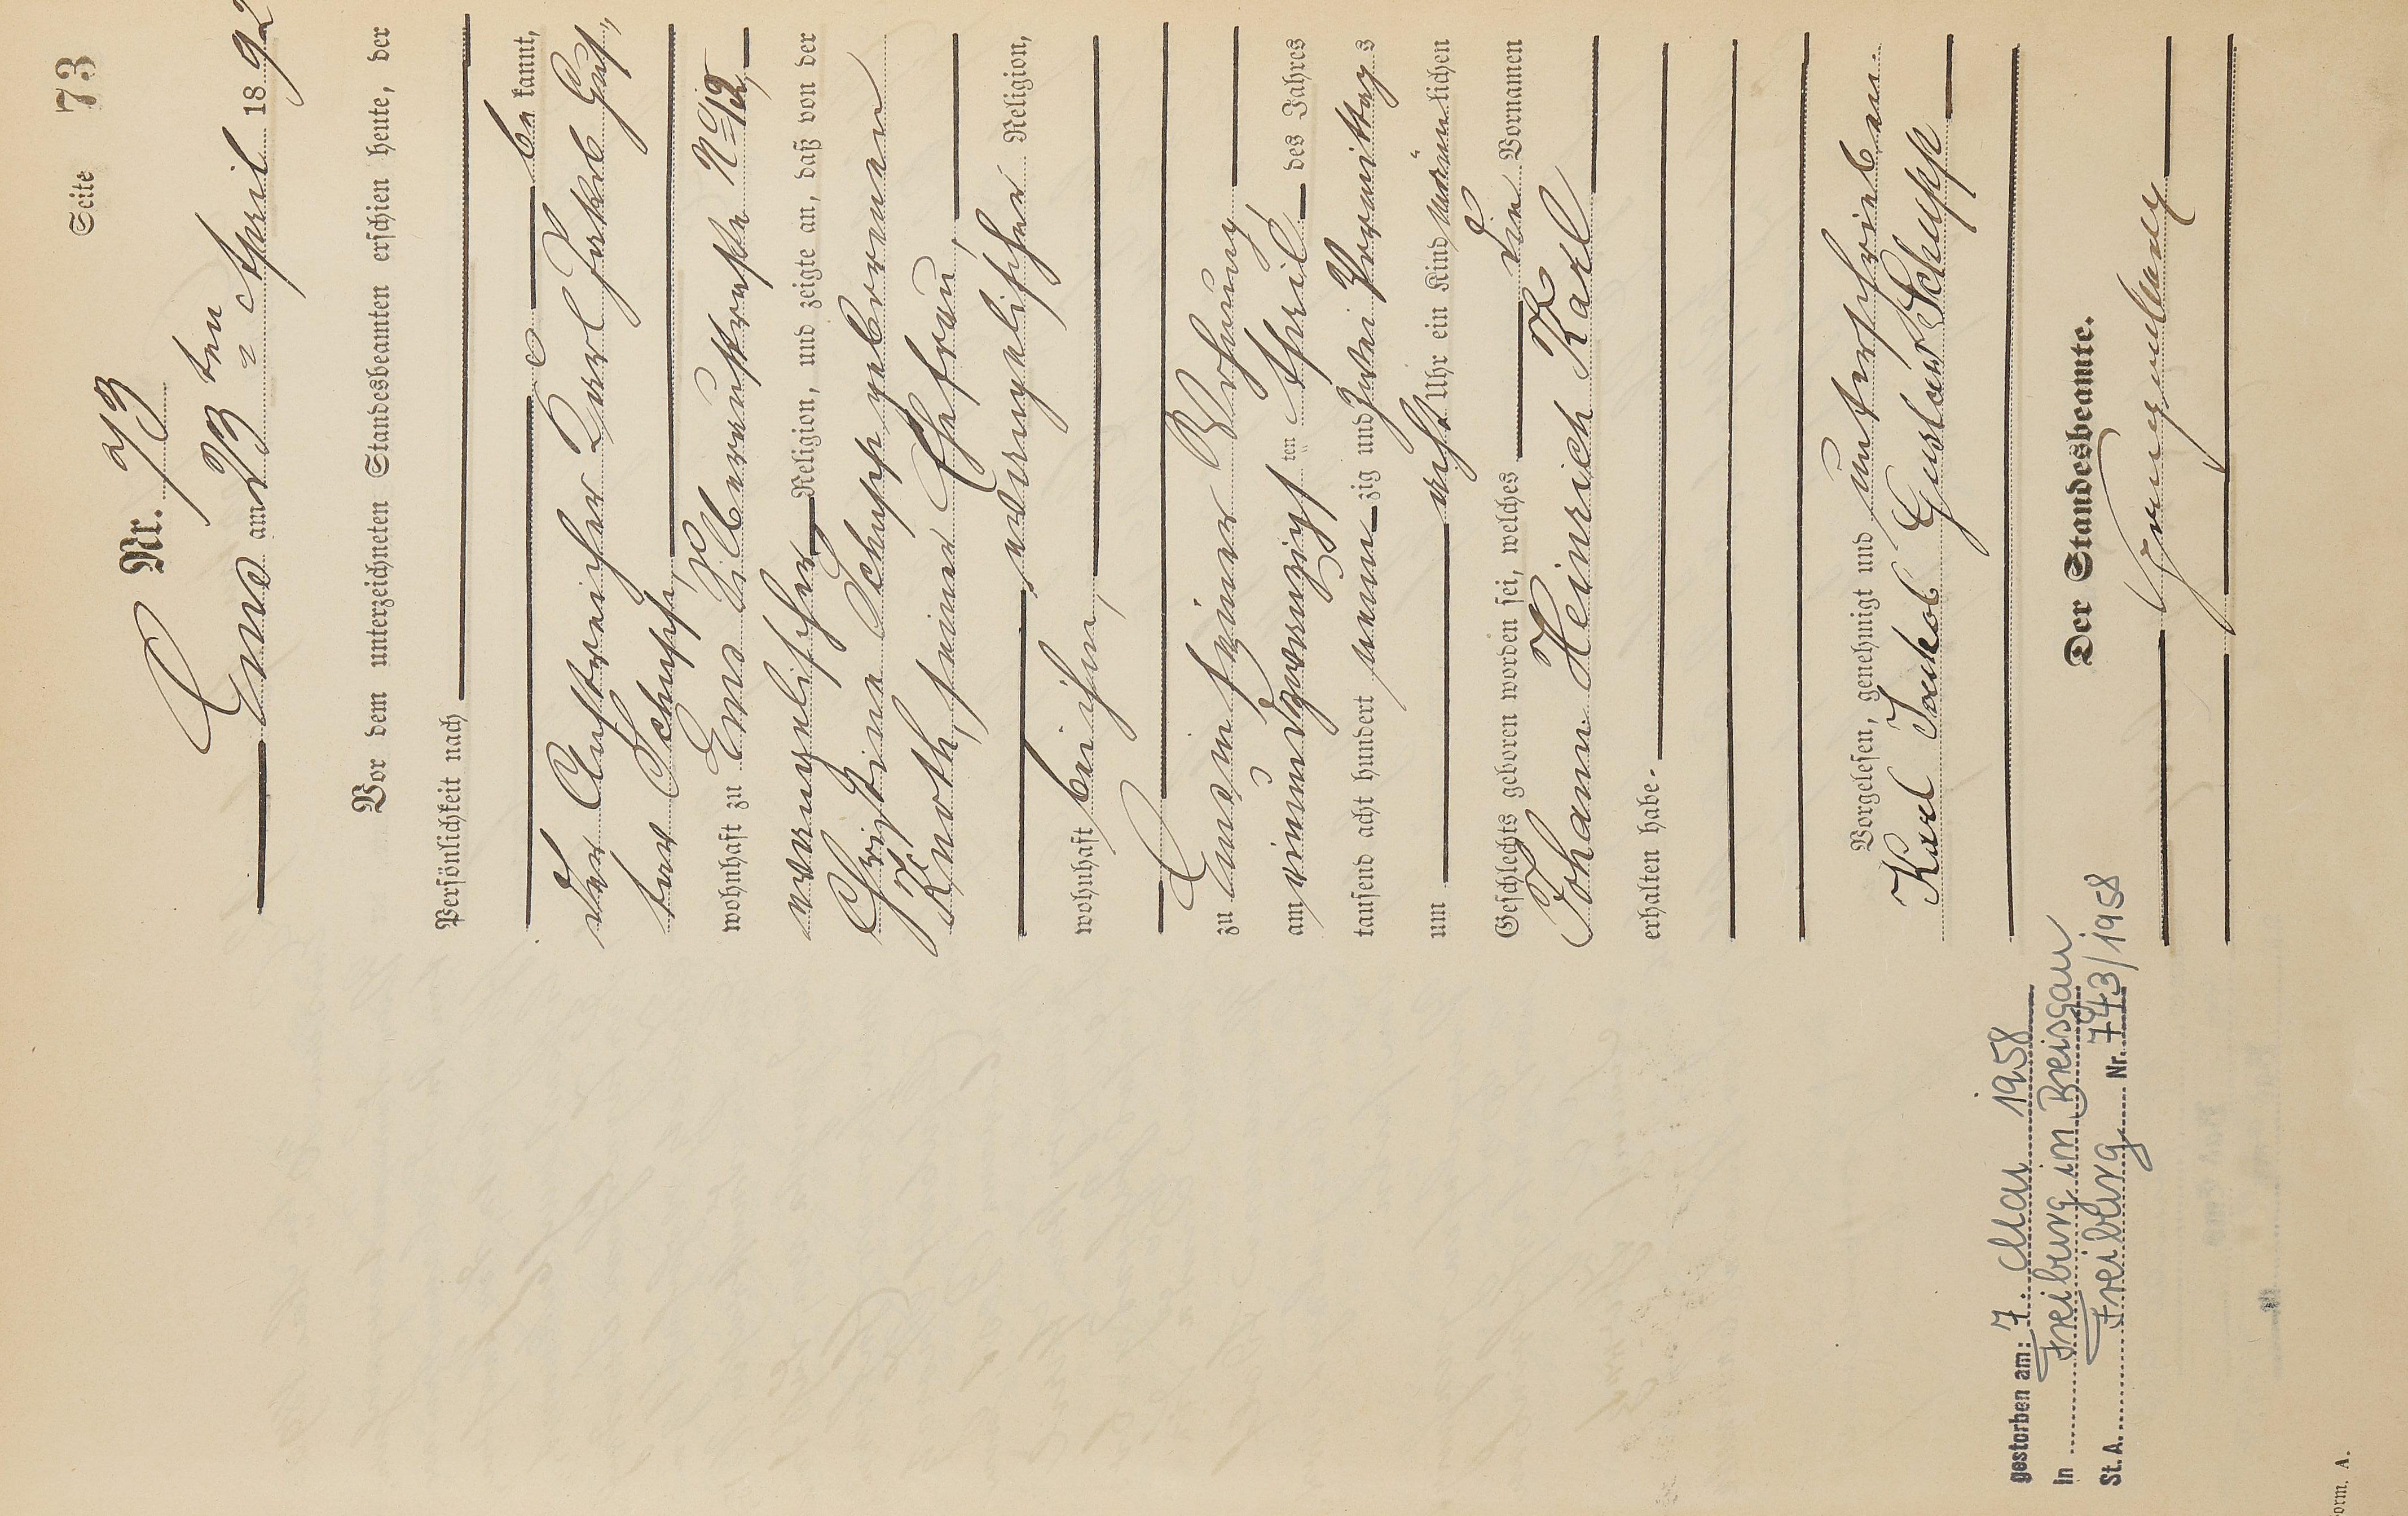 Seite 73
Nr. 73
Ems am 23 ten April 1892
Vor dem unterzeichneten Standesbeamten erschien heute, der
Persönlichkeit nach
be kannt,
der Anstreicher Karl Jakob Gus-
tav Schupp,
wohnhaft zu Ems Silberaustraße No 12,
evangelischer Religion, und zeigte an, daß von der
Christine Schupp geborenen
Knoth, seiner Ehefrau,
evangelischer Religion,
wohnhaft bei ihm,
zu Ems in seiner Wohnung
am einundzwanzigsten April des Jahres
tausend acht hundert neun zig und zwei Vormittags
um acht Uhr ein Kind männlichen
Geschlechts geboren worden sei, welches den Vornamen
Johann Heinrich Karl
erhalten habe.
Vorgelesen, genehmigt und unterschrieben.
Karl Jakob Gustav Schupp
Der Standesbeamte.
gestorben am: 7. Mai 1958
in Freiburg im Breisgau
St. A. Freiburg Nr. 743/1958
orm. A.